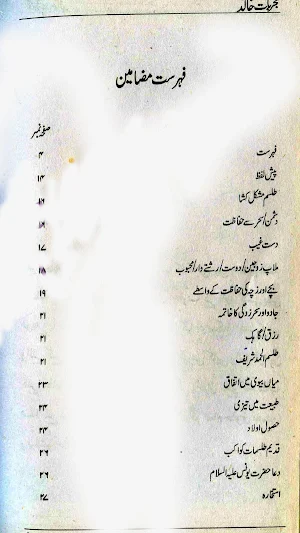 مجربات خالد
فہرست مضامین
صفحہ نمبر
فہرست ۴
پیش لفظ ۱۴
طلسم مشکل کشا ۱۶
دشمن/سحر سے حفاظت ۱۶
دست غیب ۱۷
ملاپ زوجین/دوست/رشتے دار/محبوب ۱۸
بچے اور زچہ کی حفاظت کے واسطے ۱۹
جادو اور سحر زدگی کا خاتمہ ۲۱
رزق/گاہک ۲۱
طلسم الحمد شریف ۲۱
میاں بیوی میں اتفاق ۲۳
طبیعت میں تیزی ۲۴
حصول اولاد ۲۴
قدیم طلسمات کواکب ۲۶
دعا حضرت یونس علیہ السلام ۲۶
استخارہ ۲۷